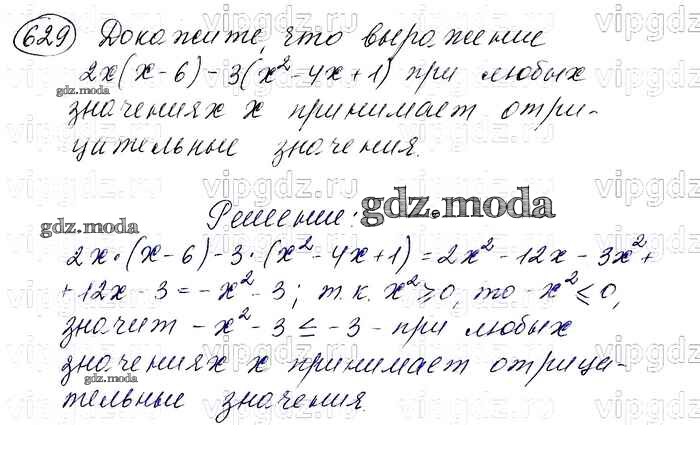 629 Докажите, что выражение
2x(x-6)-3(x²-4x+1) при любых
значениях x принимает отри-
цательные значения.
Решение:
2x·(x-6)-3·(x²-4x+1)=2x²-12x-3x²+
+12x-3=-x²-3; т.к. x²⩾0, то -x²⩽0,
значит -x²-3≤-3 - при любых
значениях x принимает отрица-
тельные значения.
gdz.moda
gdz.moda
gdz.moda
gdz.moda
vipgdz.ru